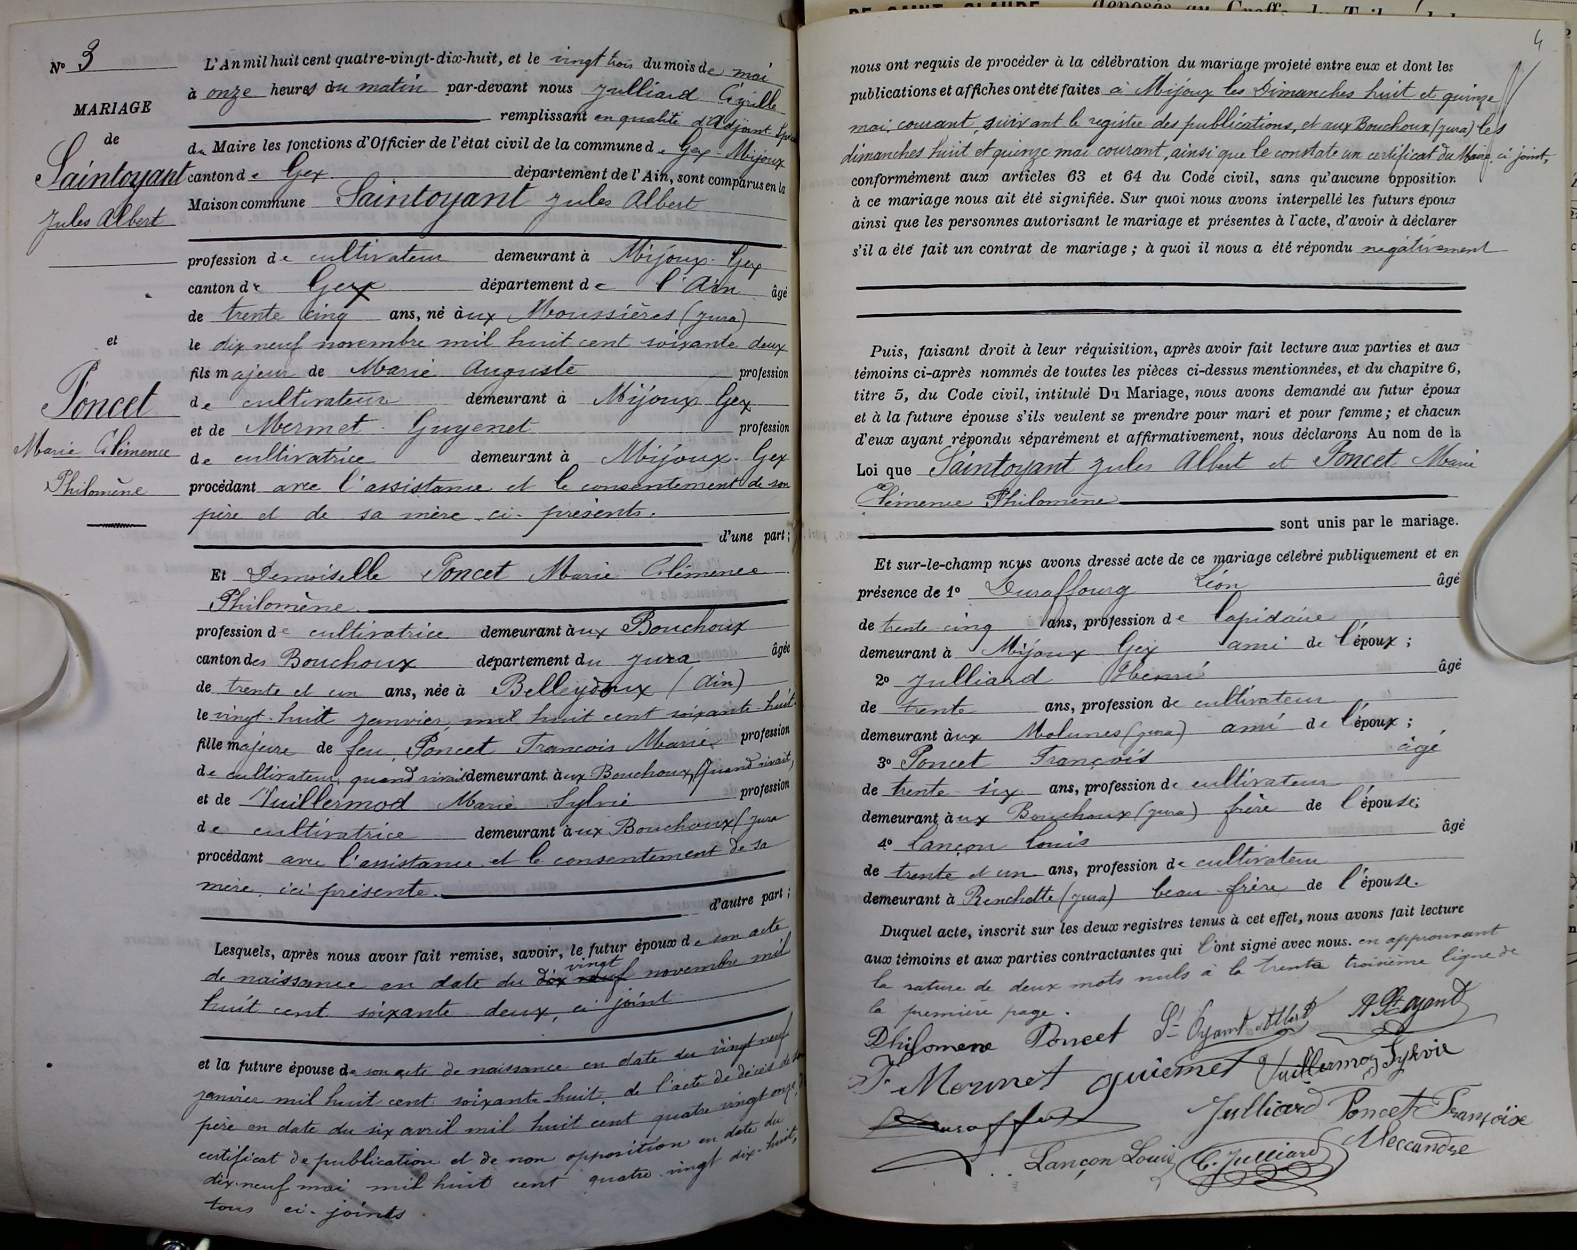 DE SAINT-CLAUDE déposés au Greffe du Tribunal de
N° 3
MARIAGE
de
Saintoyant
Jules Albert
et
Poncet
Marie Clémence
Philomène
L'An mil huit cent quatre-vingt-dix-huit, et le vingt trois du mois de mai
à onze heures du matin par-devant nous Julliard Cyrille
remplissant en qualité d'Adjoint Spécial
du Maire les fonctions d'Officier de l'état civil de la commune de Gex-Mijoux
canton de Gex département de l'Ain, sont comparus en la
Maison commune Saintoyant Jules Albert
profession de cultivateur demeurant à Mijoux-Gex
canton de Gex département de l'Ain âgé
de trente cinq ans, né aux Moussières (Jura)
le dix neuf novembre mil huit cent soixante deux
fils majeur de Marie Auguste profession
de cultivateur demeurant à Mijoux Gex
et de Mermet-Guyenet profession
de cultivatrice demeurant à Mijoux-Gex
procédant avec l'assistance et le consentement de son
père et de sa mère ci-présents.
d'une part;
Et Demoiselle Poncet Marie Clémence
Philomène
profession de cultivatrice demeurant aux Bouchoux
canton des Bouchoux département du Jura âgée
de trente et un ans, née à Belleydoux (Ain)
le vingt-huit janvier mil huit cent soixante-huit
fille majeure de feu Poncet François Marie profession
de cultivateur, quand vivait demeurant aux Bouchoux, quand vivait,
et de Vuillermod Marie Sylvie profession
de cultivatrice demeurant aux Bouchoux (Jura
procédant avec l'assistance et le consentement de sa
mère, ici présente.
d'autre part;
Lesquels, après nous avoir fait remise, savoir, le futur époux de son acte
vingt
de naissance en date du dix neuf novembre mil
huit cent soixante deux, ci joint
et la future épouse de son acte de naissance en date du vingt neuf
janvier mil huit cent soixante-huit, de l'acte de décès de son
père en date du six avril mil huit cent quatre vingt onze, du
certificat de publication et de non opposition en date du
dix-neuf mai mil huit cent quatre-vingt dix-huit,
tous ci-joints
4
nous ont requis de procéder à la célébration du mariage projeté entre eux et dont les
publications et affiches ont été faites à Mijoux les Dimanches huit et quinze
mai, courant, suivant le registre des publications, et aux Bouchoux (Jura) les
dimanches huit et quinze mai courant, ainsi que le constate un certificat du Maire, ci joint,
conformément aux articles 63 et 64 du Code civil, sans qu'aucune opposition
à ce mariage nous ait été signifiée. Sur quoi nous avons interpellé les futurs époux
ainsi que les personnes autorisant le mariage et présentes à l'acte, d'avoir à déclarer
s'il a été fait un contrat de mariage; à quoi il nous a été répondu négativement
Puis, faisant droit à leur réquisition, après avoir fait lecture aux parties et aux
témoins ci-après nommés de toutes les pièces ci-dessus mentionnées, et du chapitre 6,
titre 5, du Code civil, intitulé Du Mariage, nous avons demandé au futur époux
et à la future épouse s'ils veulent se prendre pour mari et pour femme; et chacun
d'eux ayant répondu séparément et affirmativement, nous déclarons Au nom de la
Loi que Saintoyant Jules Albert et Poncet Marie
Clémence Philomène
sont unis par le mariage.
Et sur-le-champ nous avons dressé acte de ce mariage célébré publiquement et en
présence de 1° Duraffourg Léon âgé
de trente cinq ans, profession de lapidaire
demeurant à Mijoux Gex ami de l'époux;
2° Julliard Henri âgé
de trente ans, profession de cultivateur
demeurant aux Molunes (Jura) ami de l'époux;
3° Poncet François âgé
de trente six ans, profession de cultivateur
demeurant aux Bouchoux (Jura) frère de l'épouse;
4° Lançon Louis âgé
de trente et un ans, profession de cultivateur
demeurant à (Jura) beau-frère de l'épouse.
Duquel acte, inscrit sur les deux registres tenus à cet effet, nous avons fait lecture
aux témoins et aux parties contractantes qui l'ont signé avec nous. en approuvant
la rature de deux mots nuls à la trente troisième ligne de
la première page.
Philomene Poncet St Oyant Albert A St Oyant
F. Mermet guienet Vuillermoz Sylvie
Duraffourg Julliard Poncet Françoix
Lançon Louis C. Julliard Aleccandre